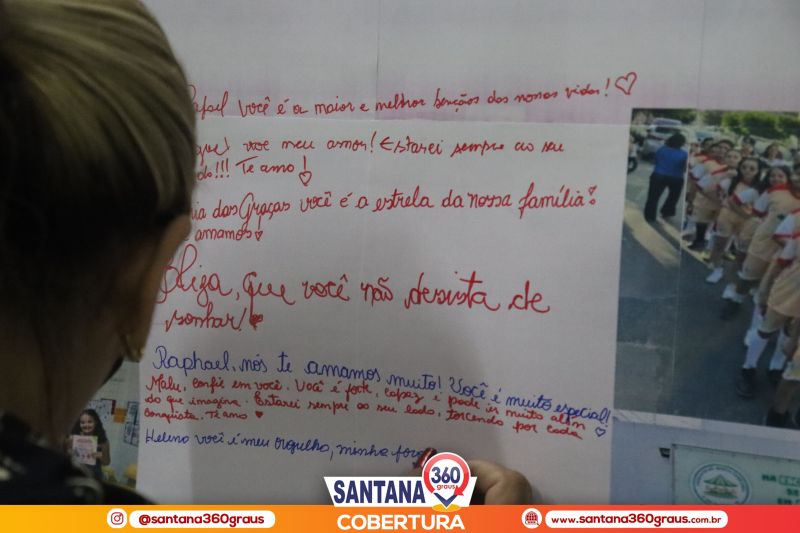 você é a maior e melhor bençãos das nossas vidas! ♡
voce meu amor! Estarei sempre ao seu
!!! Te amo!
das Graças você é a estrela da nossa família!
amamos
que você não desista de
sonhar!
Raphael, nós te amamos muito! Você é muito especial!
Malu, confie em você. Você é forte, capaz e pode ir muito além
do que imagina. Estarei sempre ao seu lado, torcendo por cada
conquista. Te amo ♥
Heleno você é meu orgulho, minha
SANTANA 360 graus
COBERTURA
@santana360graus
www.santana360graus.com.br